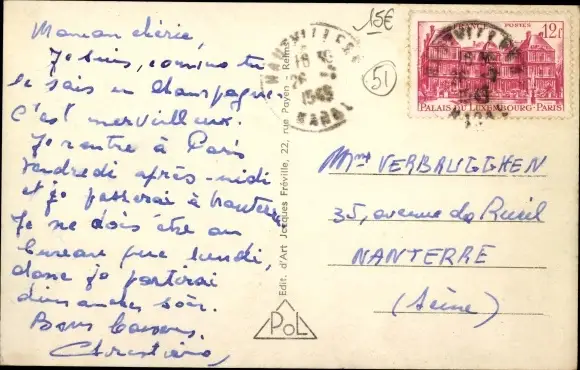 Maman chérie,
Je suis, comme tu
le sais en champagne
c'est merveilleux.
Je rentre à Paris
vendredi après-midi
et je passerai à Nanterre
Je ne dois être au
bureau que lundi,
donc je partirai
dimanche soir.
Bons baisers,
Christiane,
Edit. d'Art Jacques Fréville, 22, rue Payen - Reims
POL
15€
51
1949
POSTES
12f
PALAIS DU LUXEMBOURG-PARIS
Mme VERBRUGGHEN
35, avenue de Rueil
NANTERRE
(Seine)